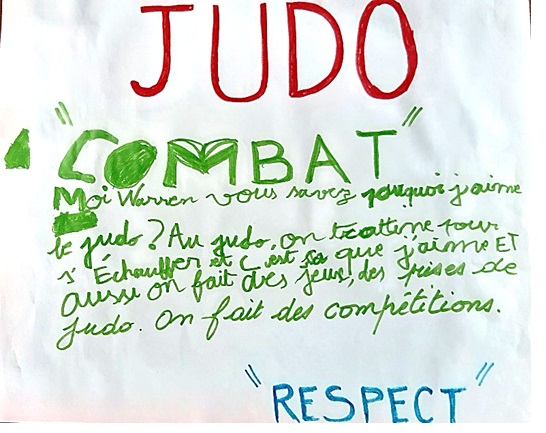 JUDO
"COMBAT"
Moi Warren vous savez pourquoi j'aime
le judo? Au judo, on trottine pour
s'Échauffer et c'est sa que j'aime ET
aussi on fait des jeux, des prises de
judo. on fait des compétitions.
"RESPECT"